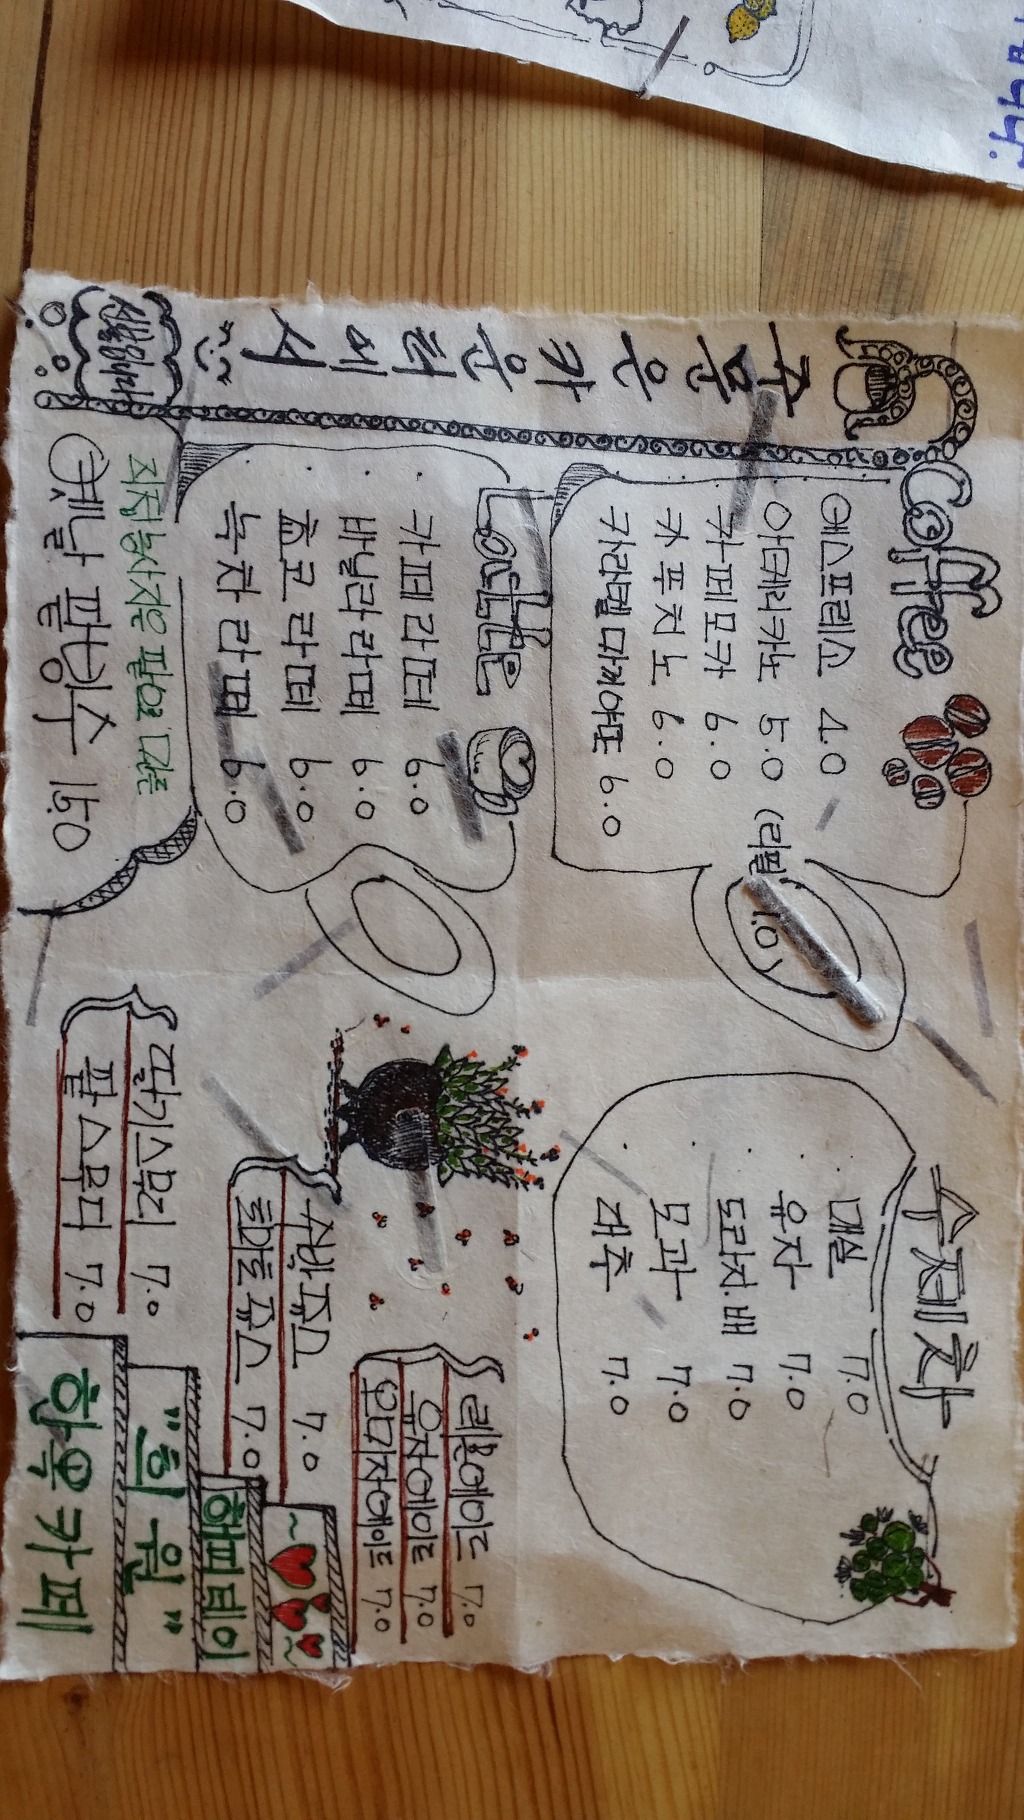 주문은 카운터에서
선불입니다
Coffee
에스프레소 4.0
아메리카노 5.0 (리필 1.0)
카페모카 6.0
카푸치노 6.0
카라멜마끼아또 6.0
Latte
카페라떼 6.0
바닐라라떼 6.0
쵸코라떼 6.0
녹차라떼 6.0
직접농사지은 팥으로 만든
옛날 팥빙수 15.0
수제차
매실 7.0
유자 7.0
도라지.배 7.0
모과 7.0
대추 7.0
레몬에이드 7.0
유자에이드 7.0
오미자에이드 7.0
수박쥬스 7.0
토마토쥬스 7.0
딸기스무디 7.0
팥스무디 7.0
해피데이
"희원"
한옥카페